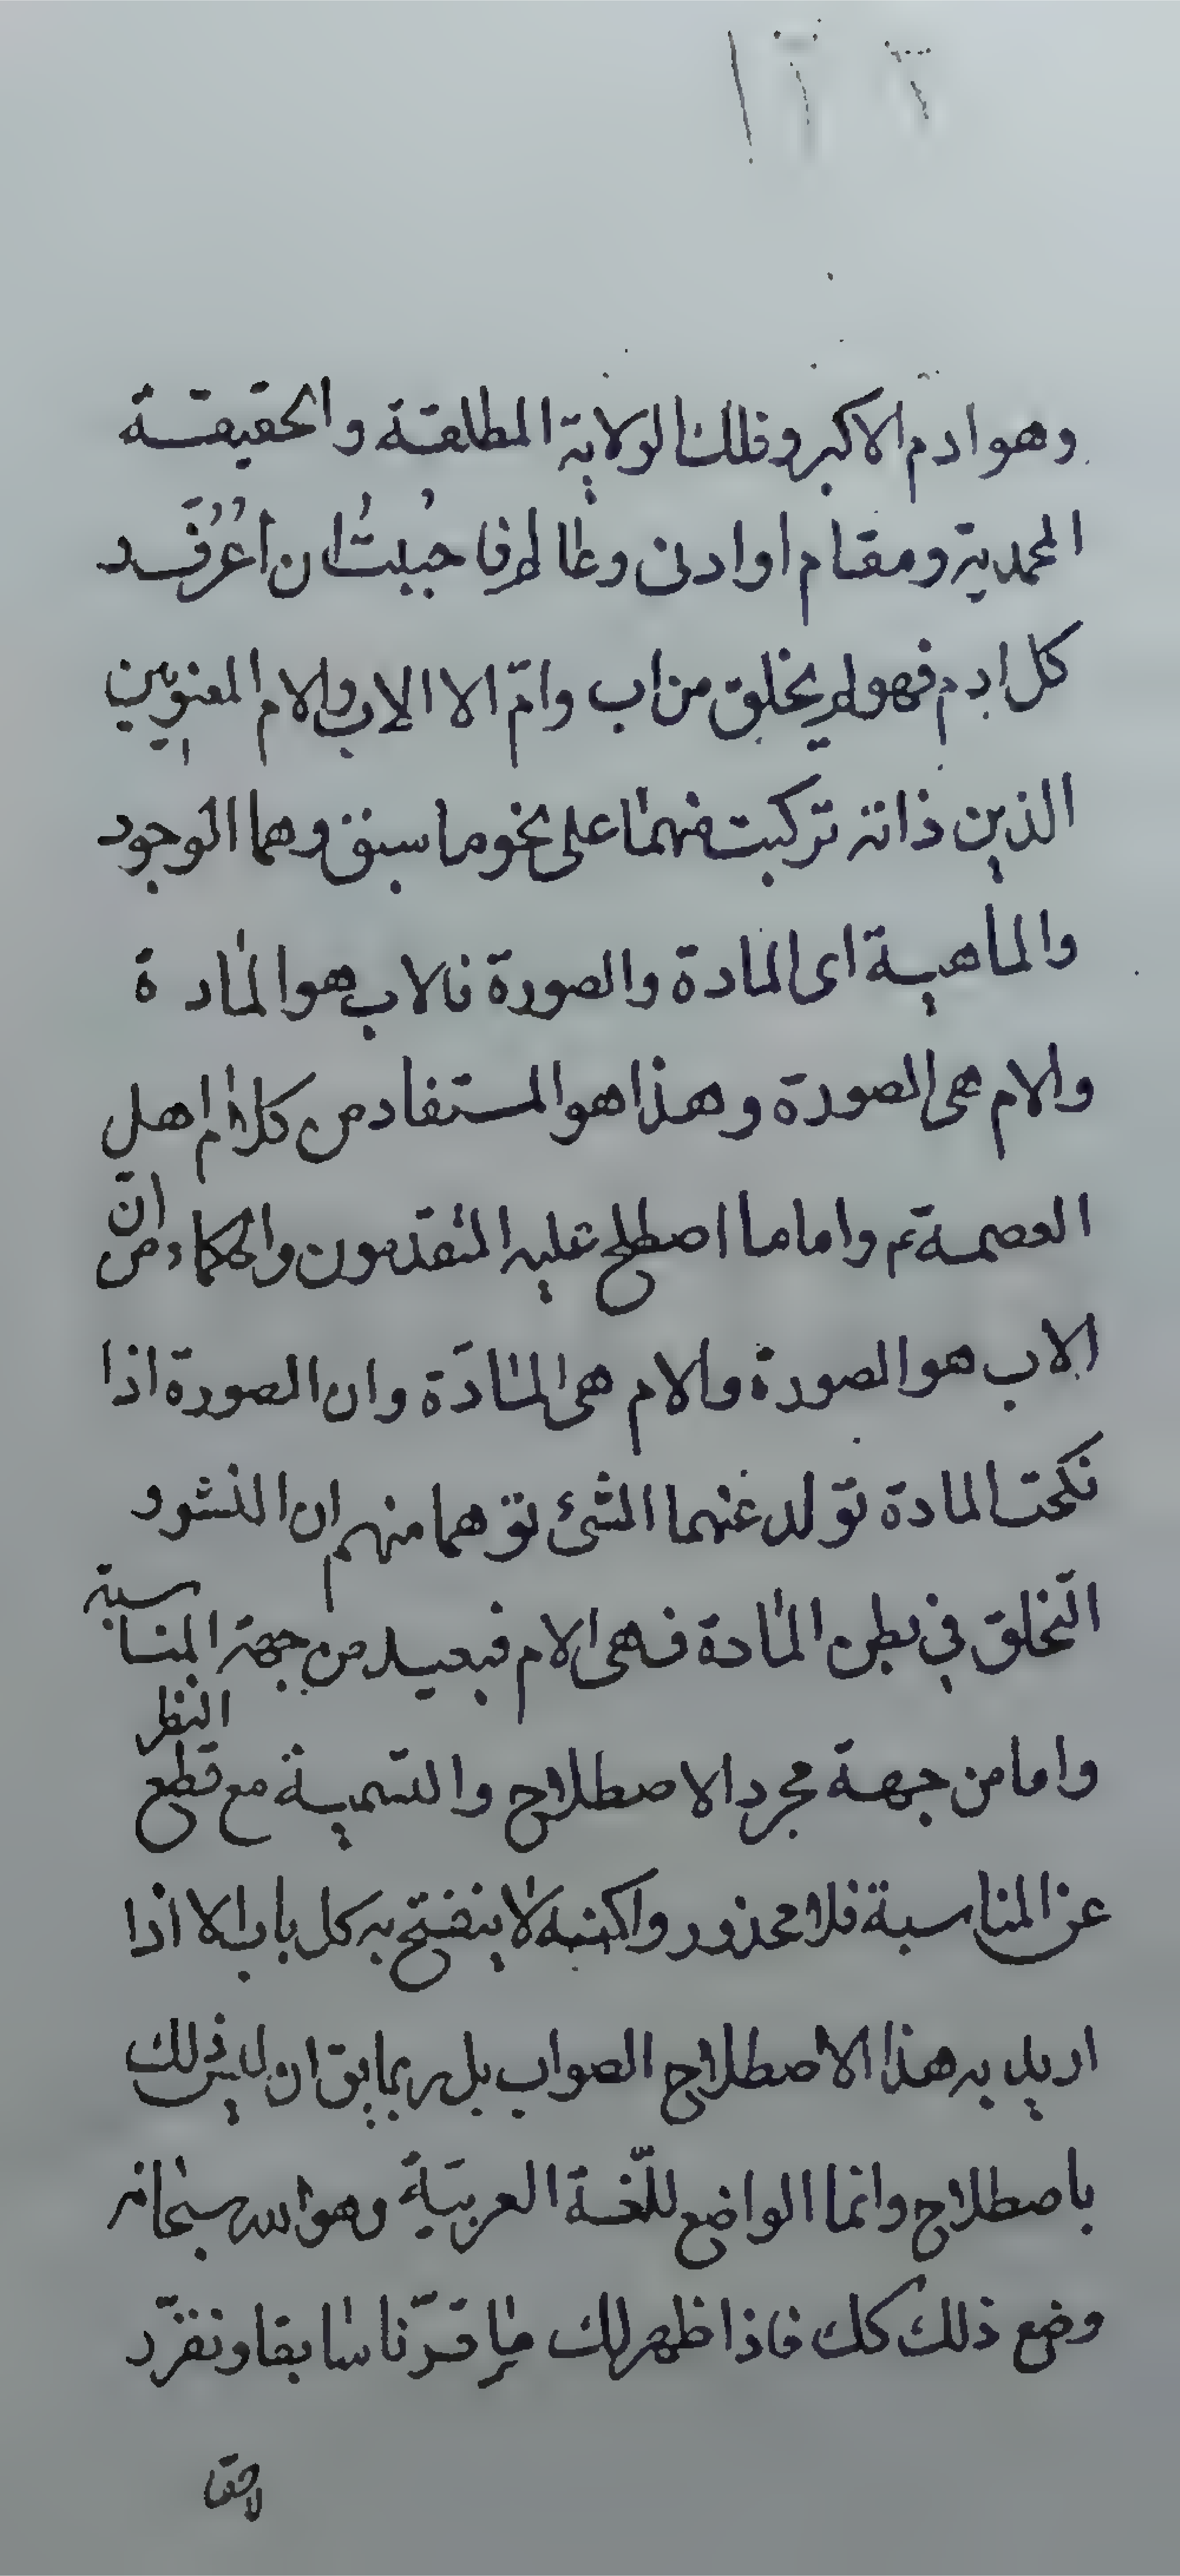 وهو ادم الاكبر وفلك الولاية المطلقة والحقيقة
المحمدية ومقام او ادنى وعالم فاحببت ان اعرف
كل ادم فهو لم يخلق من اب وامّ الا الاب والام المعنويين
الذين ذاته تركبت منهما على نحو ما سبق وهما الوجود
والماهية اى المادة والصورة فالاب هو المادة
والام هى الصورة وهذا هو المستفاد من كلام اهل
العصمة ع واما ما اصطلح عليه المتقدمون والحكماء من انّ
الاب هو الصورة والام هى المادّة وان الصورة اذا
نكحت المادة تولد عنهما الشئ توهما منهم ان النشو و
التخلق فى بطن المادة فهى الام فبعيد من جهة المناسبة
واما من جهة مجرد الاصطلاح والتسمية مع قطع النظر
عن المناسبة فلا محذور ولكنه لا ينفتح به كل باب الا اذا
اريد به هذا الاصطلاح الصواب بل ربما يق ان ليس ذلك
باصطلاح وانما الواضع للّغة العربيّة وهو الله سبحانه
وضع ذلك كك فاذا ظهر لك ما قرّنا سابقا ونفرّد
لاحقا